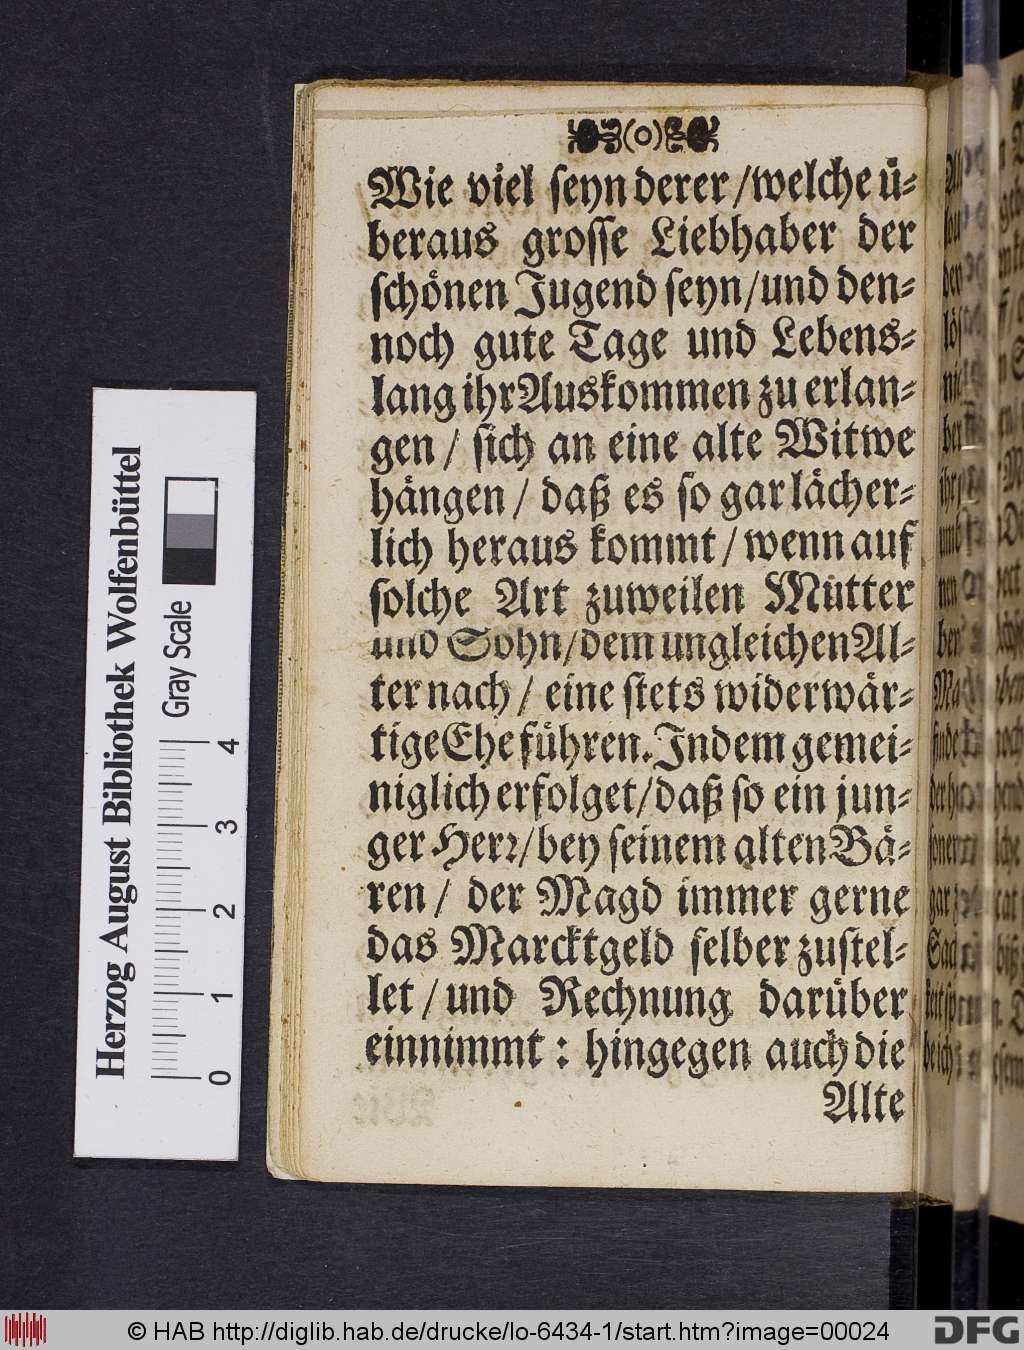 (o)
Wie viel seyn derer / welche ü-
beraus grosse Liebhaber der
schönen Jugend seyn / und den-
noch gute Tage und Lebens-
lang ihr Auskommen zu erlan-
gen / sich an eine alte Witwe
hängen / daß es so gar lächer-
lich heraus kommt / wenn auf
solche Art zuweilen Mütter
und Sohn / dem ungleichen Al-
ter nach / eine stets widerwär-
tige Ehe führen. Indem gemei-
niglich erfolget / daß so ein jun-
ger Herr / bey seinem alten Bä-
ren / der Magd immer gerne
das Marcktgeld selber zustel-
let / und Rechnung darüber
einnimmt : hingegen auch die
Alte
Herzog August Bibliothek Wolfenbüttel
Gray Scale
0 1 2 3 4
© HAB http://diglib.hab.de/drucke/lo-6434-1/start.htm?image=00024
DFG